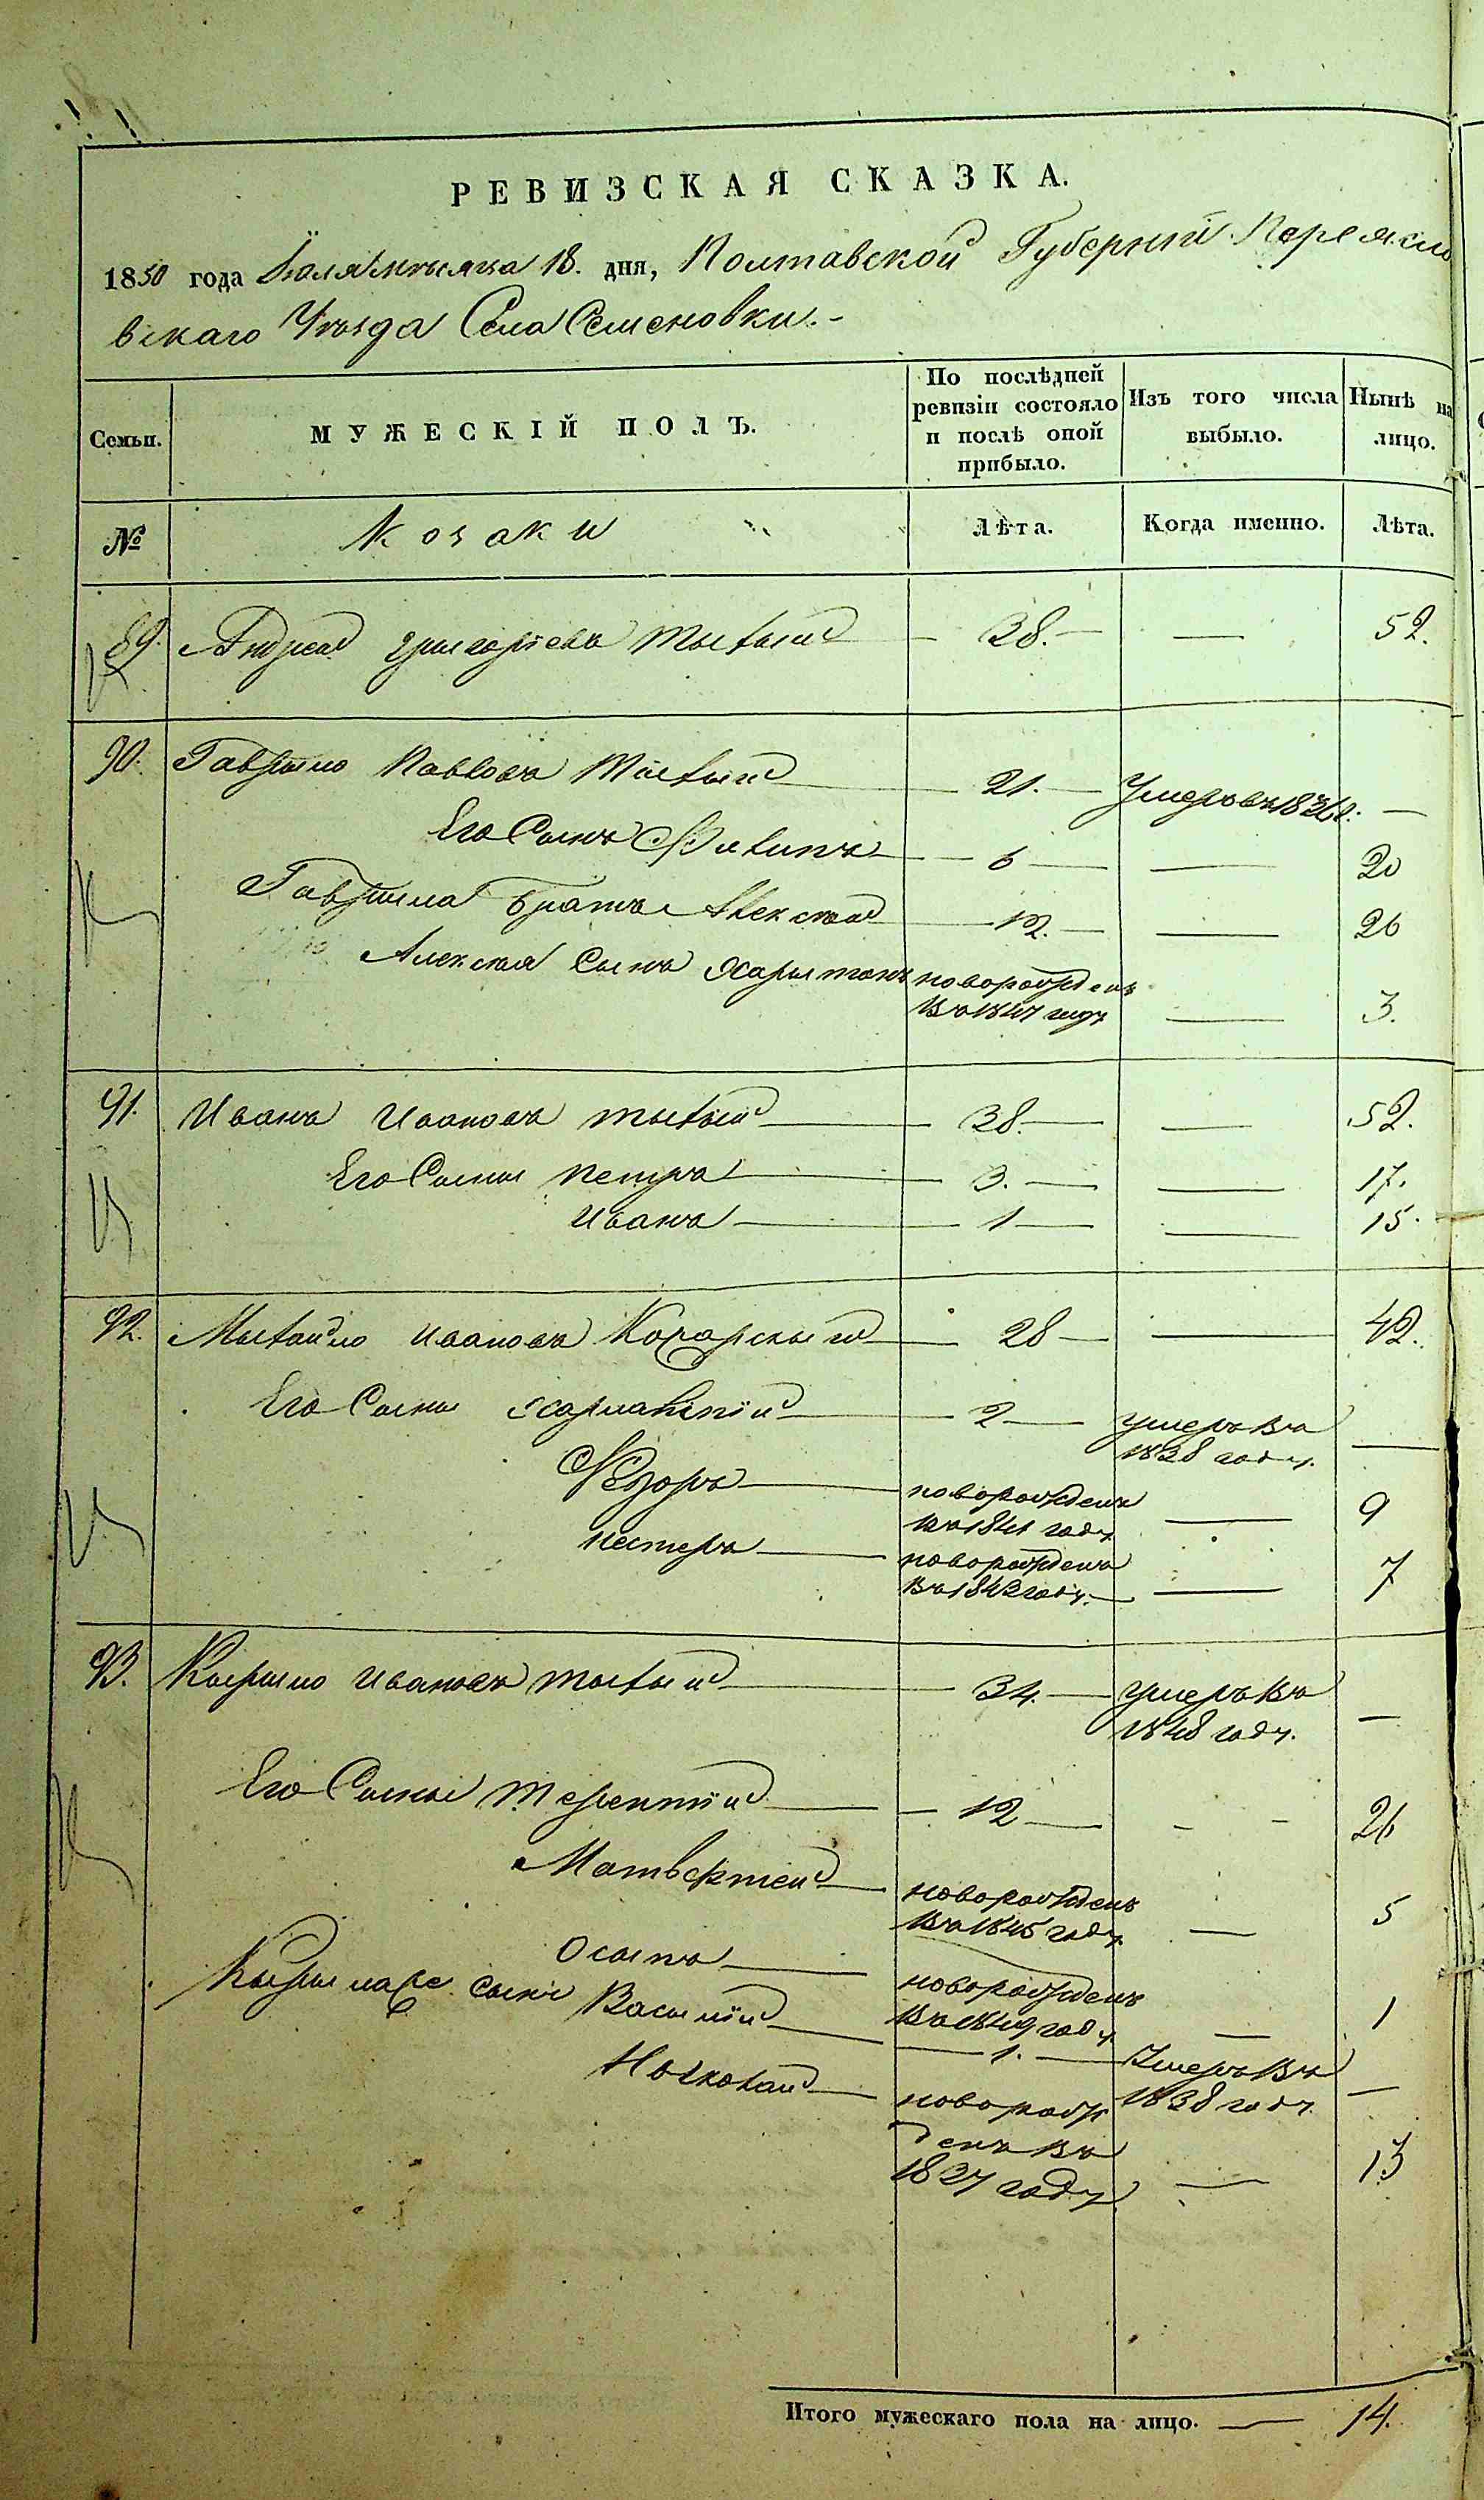 РЕВИЗСКАЯ СКАЗКА.
1850 года Іюля мѣсяца 18. дня, Полтавской Губерніи Переясло
вскаго Уѣзда Села Семеновки.-
Семьи. МУЖЕСКІЙ ПОЛЪ. По послѣдней ревизіи состояло и послѣ оной прибыло. Изъ того числа выбыло. Нынѣ на лицо.
№ Козаки Лѣта. Когда именно. Лѣта.
89. Андрей Григоріевъ 38. — — 52.
90. Гаврыло Павловъ 21. — Умеръ въ —
Его Сынъ Филипъ — 6 — — 20
Гаврыла братъ Алексѣй — 12. — — 26
Алексѣя Сынъ Харытонъ новорожденъ
въ 1847 году — 3.
91. Иванъ Ивановъ — 38. — — 52.
Его Сыны Петръ — 3. — — 17.
Иванъ — 1 — — 15.
92. Мыхайло Ивановъ — 28 — — 42.
Его Сыны — 2 — умеръ въ
1838 году. —
Федоръ — новорожденъ
въ 1841 году — 9
Нестеръ — новорожденъ
въ 1843 году. — — 7
93. Кырыло Ивановъ — 34. — умеръ въ
1848 году. —
Его Сыны Терентій — 12 — - - 26
Матвей — новорожденъ
въ 1845 году — 5
Осыпъ — новорожденъ
въ 1849 году. — 1
Кырыла же сыны Васылій — 1. — Умеръ въ
1838 году. —
новорож
денъ въ
1837 году — 13
Итого мужескаго пола на лицо. — 14.